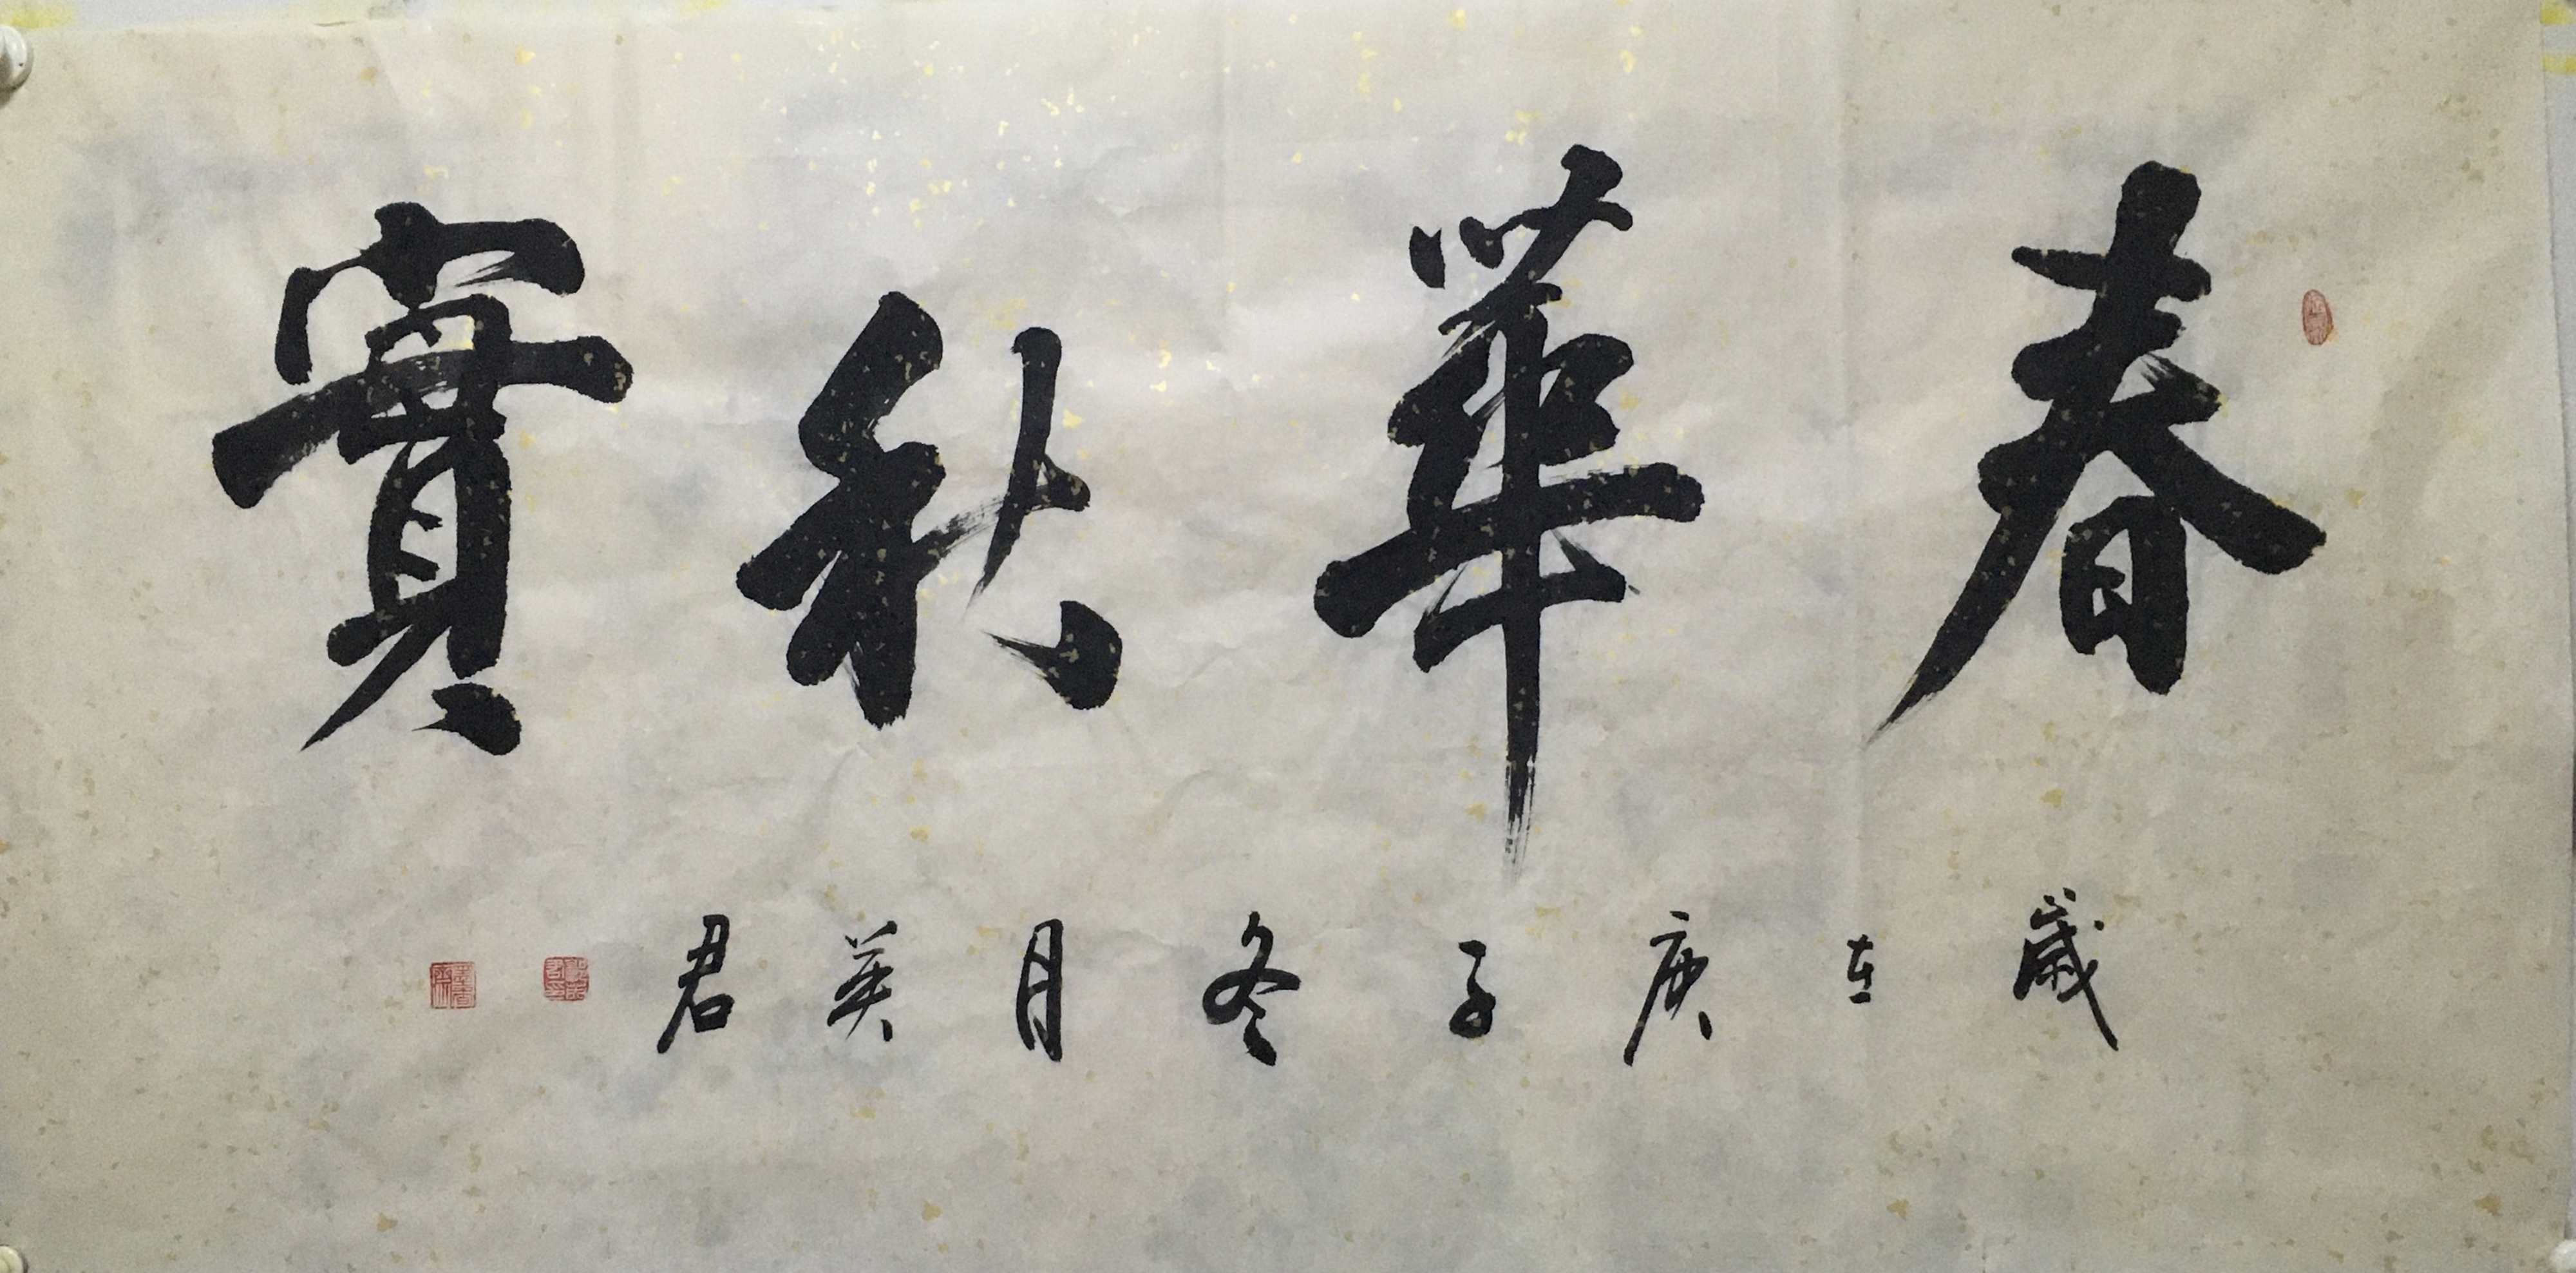 春華秋實
歲在庚子冬月英君